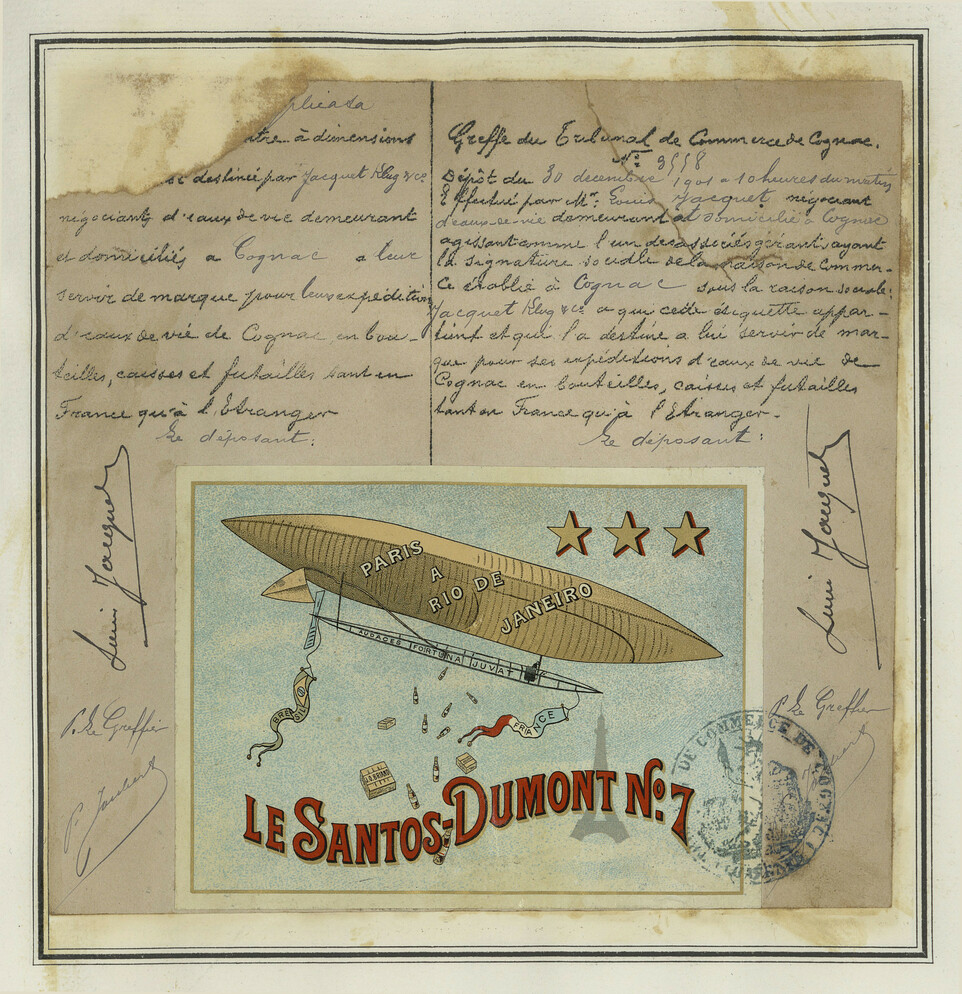 plicata
tre à dimensions
destinée par Jacquet Klug & Cie
négociants d'eaux de vie demeurant
et domiciliés a Cognac a leur
servir de marque pour leurs expéditions
d'eaux de vie de Cognac en bou-
teilles, caisses et futailles tant en
France qu'à l'Etranger
Le déposant:
Greffe du Tribunal de Commerce de Cognac.
No 3558
Dépôt du 30 decembre 1901 a 10 heures du matin
Effectué par Mr: Louis Jacquet négociant
d'eaux-de-vie demeurant et domicilié a Cognac
agissant comme l'un des associés gérants ayant
la signature sociale de la maison de Commer-
ce établie à Cognac sous la raison sociale:
Jacquet Klug & Cie a que cette étiquette appar-
tient et qu'il l'a destine a lui servir de mar-
que pour ses expéditions d'eaux de vie de
Cognac en bouteilles, caisses et futailles
tant en France qu'à l'Etranger.
Le déposant:
Louis Jacquet
Louis Jacquet
P. Le Greffier
P. Le Greffier
PARIS
A
RIO DE
JANEIRO
AUDACES FORTUNA JUVAT
BRESIL
FRANCE
LE SANTOS-DUMONT No. 7
DE COMMERCE DE COGNAC